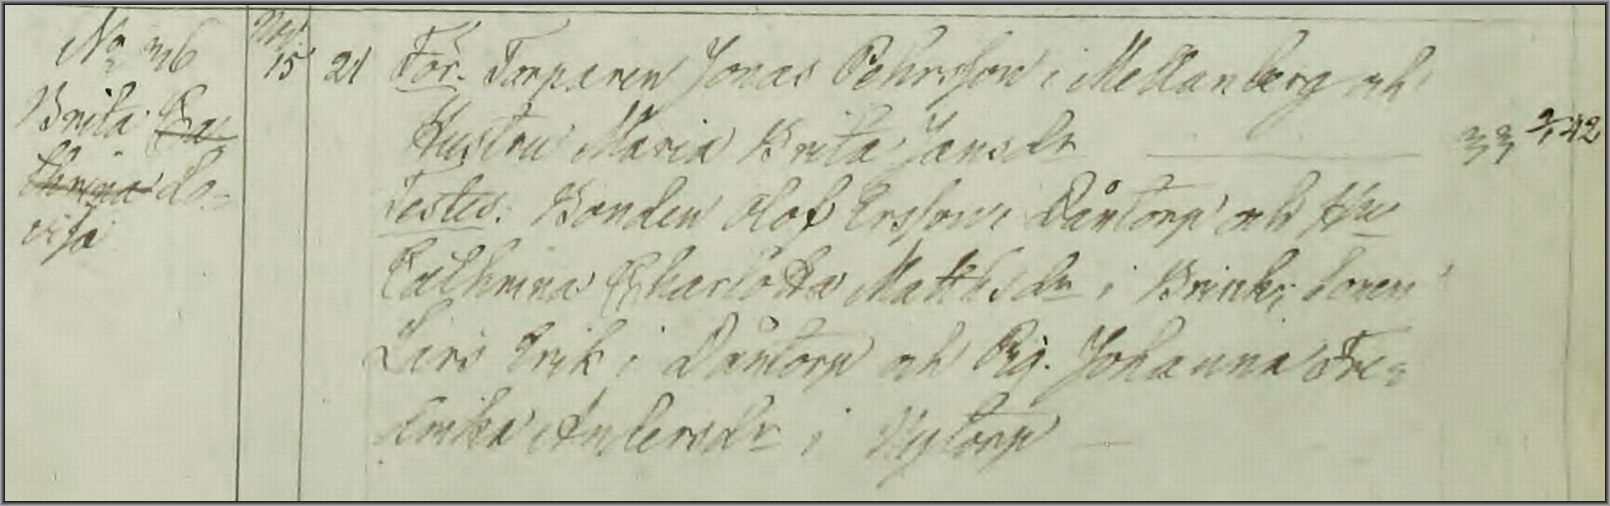 No 36
Brita Ca-
thrina Lo-
visa
Nov.
15 21 För. Torparen Jonas Pehrsson i Mellanberg och
Hustru Maria Brita Jansdr 33 2/1 42
Testes: Bonden Olof Ersson i Dåntorp och Hu
Cathrina Charlotta Mattsdr i Brink; Sonen
Lars Erik i Dåntorp och Pig. Johanna Fre-
drika Andersdr i Nytorp